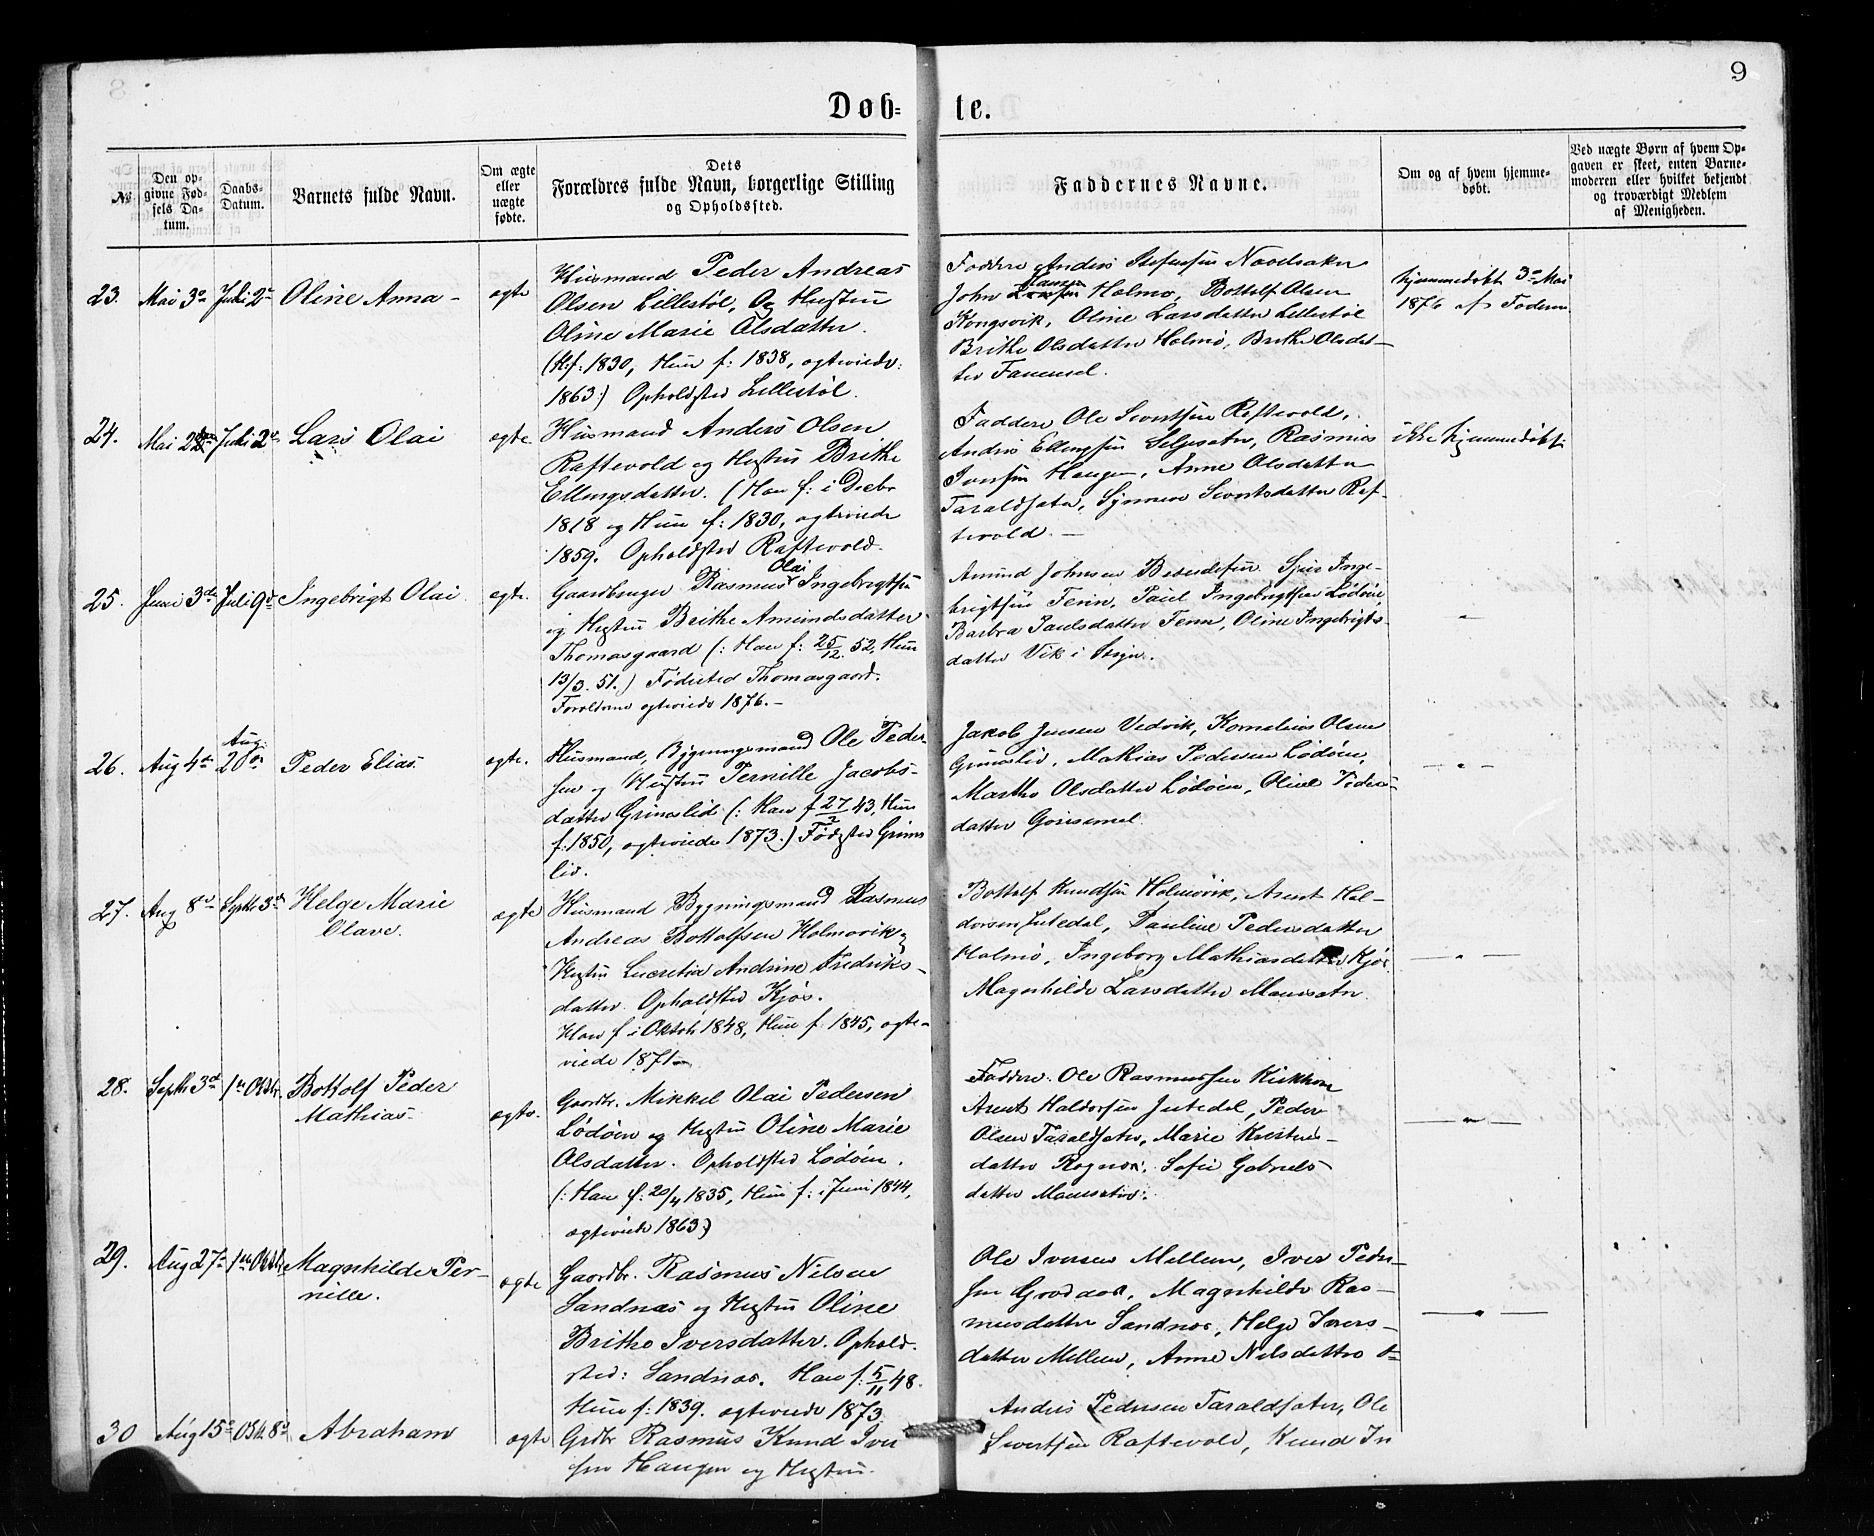 9
Døb-te.
No
Den opgivne Fødsels Datum.
Daabs-Datum.
Barnets fulde Navn.
Om ægte eller uægte fødte.
Dets Forældres fulde Navn, borgerlige Stilling og Opholdssted.
Faddernes Navne.
Om og af hvem hjemmedøbt.
Ved uægte Børn af hvem Opgaven er skeet, enten Barnemoderen eller hvilket bekjendt og troværdigt Medlem af Menigheden.
23. Mai 3de Juli 2den Oline Anna - ægte
Husmand Peder Andreas
Olsen Lillestøl, Og Hustru
Oline Marie Olsdatter.
(H. f: 1830, Hun f: 1838, ægteviede:
1863:) Opholdsted Lillestøl.
Faddere Anders
John Hansen Holmø, Bottolf Olsen
Kongsvik, Oline Larsdatter Lillestøl
Brithe Olsdatter Holmø, Brithe Olsdat-
ter
hjemmedøbt 3die Mai
1876 af Faderen
24. Mai Juli 2den Lars Olai ægte
Husmand Anders Olsen
Raftevold og Hustru Brithe
Ellingsdatter. (Han f: i Decbr
1818 og Hun f: 1830, ægteviede
1859. Opholdsted Raftevold.
Faddere Ole Sivertsen Raftevold,
Anders Ellingsen Seljesæter, Rasmus
Iversen Haugen, Anne Olsdatter
Taraldsæter, Synneve Sivertsdatter Raf-
tevold. -
ikke hjemmedøbt
25. Juni 3die Juli 9de Ingebrigt Olai ægte.
Gaardbruger Rasmus Olai Ingebrigtsen
og Hustru Brithe Amundsdatter
Thomasgaard (: Han f: 25/12 52, Hun
13/3. 51.) Fødested Thomasgaard.
Forældrene ægteviede 1876. -
Amund Johnsen Sjur Inge-
brigtsen Paul Ingebrigtsen Lødøen,
Barbra Paulsdatter Oline Ingebrigts-
datter Vik i
- " -
26. Aug 4de Aug: 20de Peder Elias ægte.
Husmand, Bygningsmand Ole Peder
sen og Hustru Pernille Jacobs-
datter Grimslid (: Han f 27/2 43, Hun
f: 1850, ægteviede 1873.) Fødested Grims
lid.
Jakob Jensen Vedvik, Kornelius Olsen
Grimslid, Mathias Pedersen Lødøen,
Marthe Olsdatter Lødøen, Oline Peders-
datter
- " -
27. Aug 8de Septbr 3die Helge Marie
Olave. ægte
Husmand Bygningsmand Rasmus
Andreas Bottolfsen Holmøvik og
Hustru Lucretia Andrine Fredriks-
datter Opholdsted Kjøs.
Han f i Oktob 1848, Hun f. 1845, ægte-
viede 1871 -
Bottolf Knudsen Holmøvik, Arent Hal-
dorsen Jutedal, Pauline Pedersdatter
Holmø, Ingeborg Mathiasdatter Kjøs
Magnhilde Larsdatter Maurseter.
- " -
28. Septbr 3die 1ste Oktbr. Bottolf Peder
Mathias ægte.
Gaardbr. Mikkel Olai Pedersen
Lødøen og Hustru Oline Marie
Olsdatter. Opholdsted Lødøen.
(: Han f: 20/4 1835, Hun f: i Juni 1844,
ægteviede 1863)
Faddere: Ole Rasmussen
Arent Haldorsen Jutedal, Peder
Olsen Taraldsæter, Marie
datter Rognes, Sofie Gabriels
datter Maurseter.
- " -
29. Aug 27de 1ste Oktbr Magnhilde Per-
nille. ægte
Gaardbr. Rasmus Nilsen
Sandnæs og Hustru Oline
Brithe Iversdatter. Ophold-
sted: Sandnæs. Han f: 5/11 48.
Hun f: 1839. ægteviede 1873
Ole Iversen Mellem, Iver Peder-
sen Magnhilde Ras-
musdatter Sandnæs, Helge Ivers-
datter Mellem, Anne Nilsdatter
- " -
30 Aug 15de Oktb. 8de Abraham ægte
Grdbr Rasmus Knud Iver
sen Haugen og Hustru
Anders Pedersen Taraldsæter, Ole
Sivertsen Raftevold, Knud In